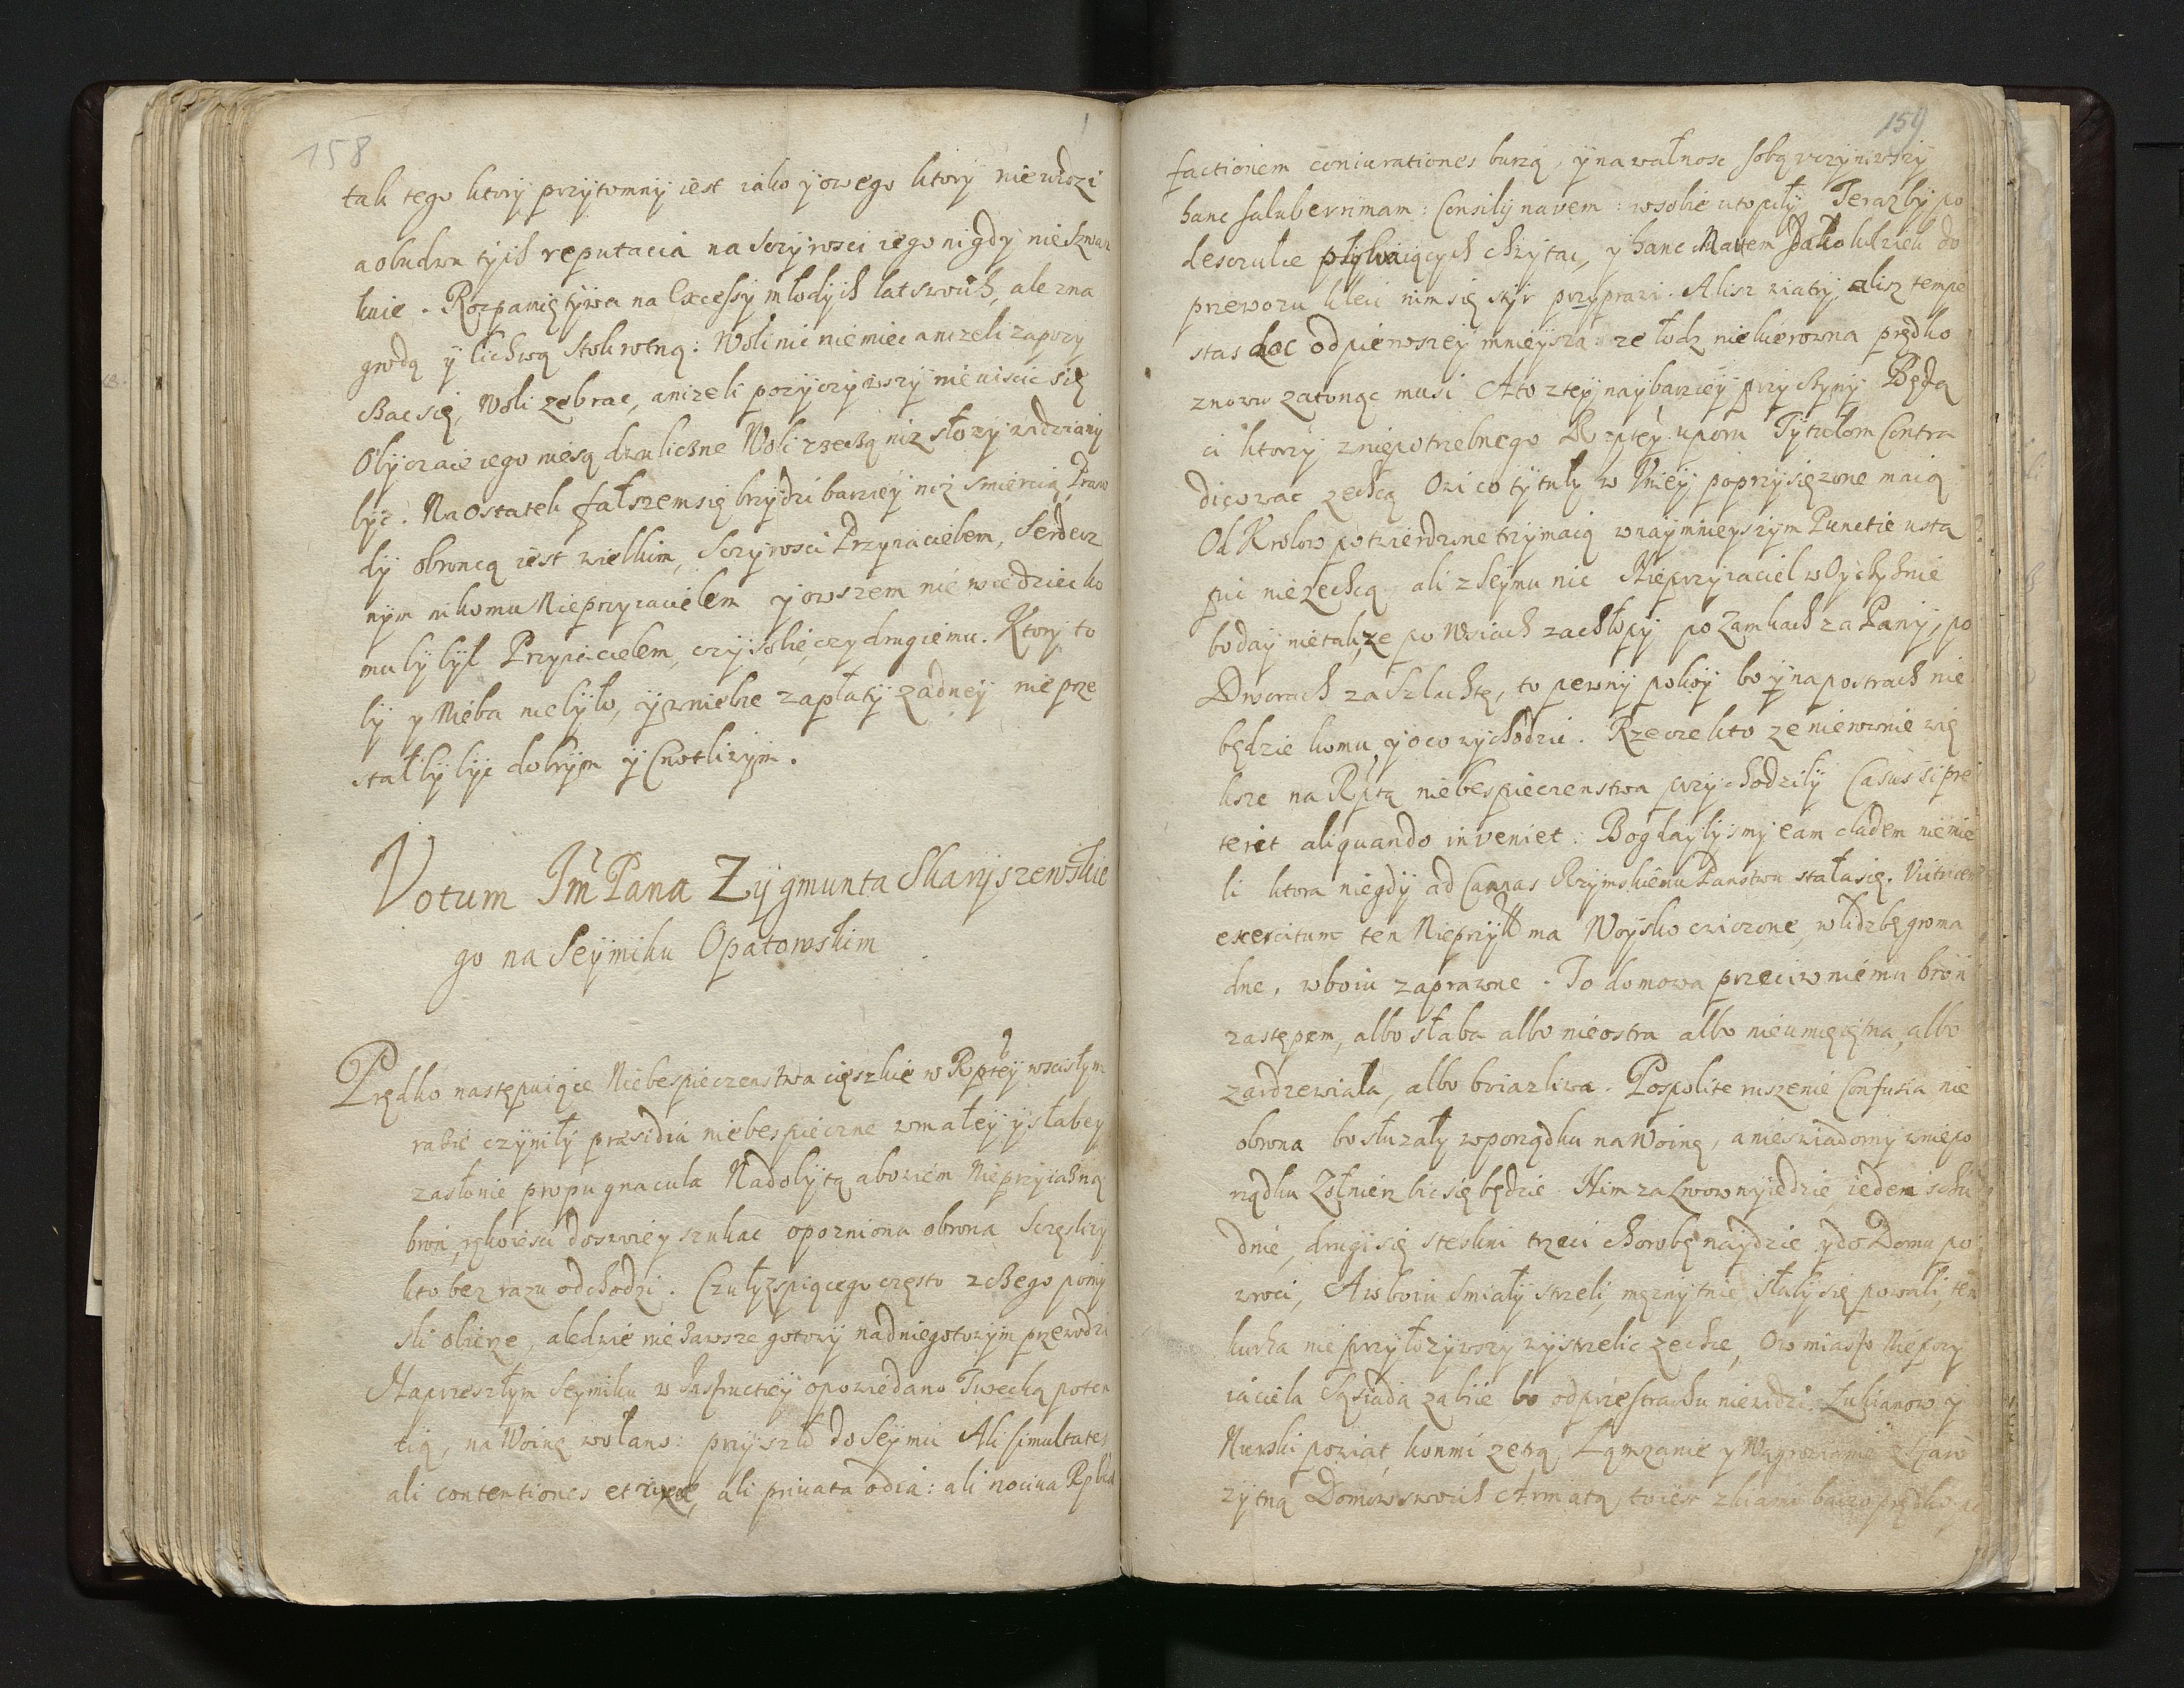 158
tak tego ktory przytomny iest iako y owego ktory nie widzi
a obudwu tych reputacia na sczyrosci iego nigdy nie szwan
kuie. Rozpamiętywa na Excessy młodych lat swoich, ale zna
grodą y lichwą stokrotną: Woli nic nie miec anizeli zapozy
czac się, Woli zebrac, anizeli pozyczywszy nie uiscic się
Obyczaie iego niesą dwuliczne Woli rzeczą niz słowy widziany
byc. Na ostatek fałszem się brzydzi barziey niz smiercią, Praw
dy obroncą iest wielkim, sczyrosci Przyiacielem, Serdecz
nym nikomu Nieprzyiacielem y owszem nie wie dziecko
mu by był Przyiacielem, czy sobie, czy drugiemu. Ktory to
by y Nieba nie było, y w niebie zapłaty zadney nie prze
stał by byc dobrym y Cnotliwym.
Votum Jmć Pana Zygmunta Skaryszewskie
go na Seymiku Opatowskim
Prędko następuiące Niebespieczenstwa cięszkie w Rptey w scisłym
razie czyniły praesidia niebespieczne w małey y słabey
zasłonie propugnacula Nadobytą abowiem Nieprzyiazną
bron, rękoiesci do swoiey szukac opozniona obrona Sczęsliwy
kto bez razu odchodzi. Czuły z spiącego często z czego pomy
sli obierze, aledwie nie zawsze gotowy nad niegotowym przewodzi
Na przeszłym Seymiku w Instructiey opowiedano Turecką poten
tią, na Woinę wołano: przyszło do Seymu Ali simultates
ali contentiones et rixae, ali privata odia: ali nociva Rpbca
159
factionem coniurationes burzą, y nawałnosc sobą uczyniwszy
hanc saluberrimam: Consilij navem: w sobie utopiły Teraz by po
desczulce pływaiących chwytac, y hanc Navem Jako kolwiek do
przewozu kleic nim się styr przyprawi. Alisz wiatry, alisz tempe
stas choc od pierwszey mnieysza ze łodz niekierowna prędko
znowu zatonąc musi A to z tey naybarziey przyczyny Będą
ci ktorzy z niepotrzebnego Rzptey uporu Tytułom Contra
dicowac zechcą Owi co tytuły w Uniey poprzysięzone maią
Od Krolow potwierdzone trzymaią w naymnieyszym Punctie ustą
pic nie zechcą ali z Seymu nic Nieprzyiaciel w Oyczyznie
boday nie tak, ze po Wsiach za chłopy po Zamkach za Pany, po
Dworach za Szlachtę, to pewny pokoy bo y na postrach nie
będzie komu, y o co wychodzic. Rzecze kto ze nie rownie wię
ksze na Rptą niebespieczenstwa przychodziły Casus si prae
teriit aliquando inveniet: Bog day bysmy eam cladem nie mie
li ktora niegdy ad Cannas Rzymskiemu Panstwu stała się. Victricem
exercitum ten Nieprzyl ma Woysko cwiczone, w liczbę groma
dne, w boiu zaprawne. To domowa przeciw niemu bron
zastępem, albo słaba albo nieostra albo nieumieiętna, albo
zardzewiała, albo boiazliwa. Pospolite ruszenie Confusia nie
obrona bo słuzały w porządku na Woinę, a nieswiadomy w niepo
rządku Zołnierz bic się będzie Nim za Lwow wyiedzie, ieden schu
dnie, drugi się steskni trzeci chorobę naydzie y do Domu po
wroci, A w boiu smiały strzeli, męzny tnie, słaby się powali, ten
kurka nie przyłozywszy wystrzelic zechce, Ow miasto Nieprzy
iaciela Sąsiada zabiie bo od przestrachu nie widzi. Łukianow y
Nurski powiat konmi zetrą Łąmzanie y Wągrowianie z staro
zytną Domow swoich Armatą, to iest z kiami barzo prędko, a